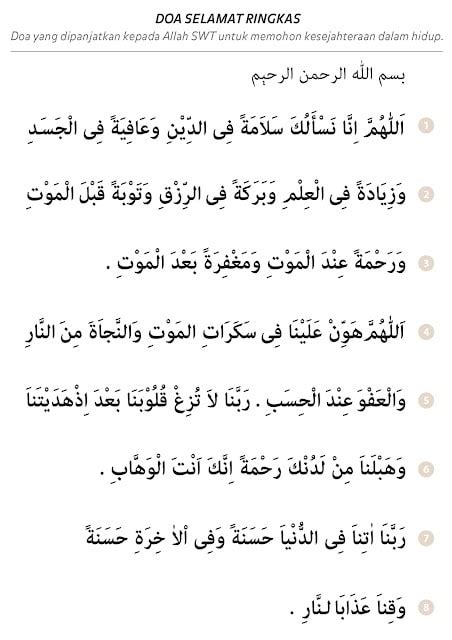 DOA SELAMAT RINGKAS
Doa yang dipanjatkan kepada Allah SWT untuk memohon kesejahteraan dalam hidup.
بسم الله الرحمن الرحيم
1 اَللّٰهُمَّ اِنَّا نَسْأَلُكَ سَلاَمَةً فِى الدِّيْنِ وَعَافِيَةً فِى الْجَسَدِ
2 وَزِيَادَةً فِى الْعِلْمِ وَبَرَكَةً فِى الرِّزْقِ وَتَوْبَةً قَبْلَ الْمَوْتِ
3 وَرَحْمَةً عِنْدَ الْمَوْتِ وَمَغْفِرَةً بَعْدَ الْمَوْتِ .
4 اَللّٰهُمَّ هَوِّنْ عَلَيْنَا فِى سَكَرَاتِ المَوْتِ وَالنَّجاَةَ مِنَ النَّارِ
5 وَالْعَفْوَ عِنْدَ الْحِسَبِ . رَبَّنَا لاَ تُزِغْ قُلُوْبَنَا بَعْدَ اِذْهَدَيْتَناَ
6 وَهَبْلَناَ مِنْ لَدُنْكَ رَحْمَةً اِنَّكَ اَنْتَ الْوَهَّابِ .
7 رَبَّنَا اٰتِناَ فِى الدُّنْياَ حَسَنَةً وَفِى اْلاٰ خِرَةِ حَسَنَةً
8 وَقِناَ عَذَابَا لنَّارِ .